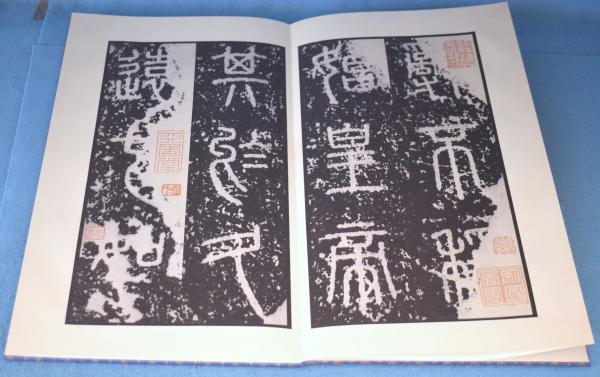 辭不稱
始皇帝
其於久
遠也如